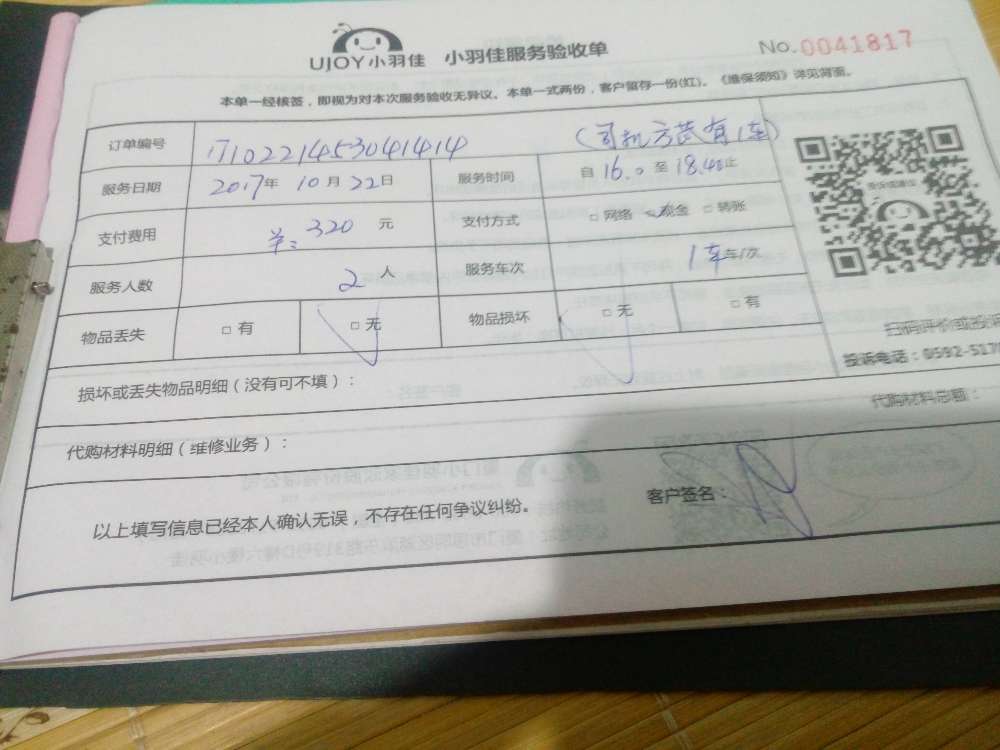 UJOY小羽佳 小羽佳服务验收单 No.0041817
本单一经核签，即视为对本次服务验收无异议。本单一式两份，客户留存一份(红)。《维保须知》详见背面。
订单编号 1710221453041414 (司机方茂有1车)
服务日期 2017年 10月 22日 服务时间 自 16.0 至 18.40止
支付费用 羊: 320 元 支付方式 □ 网络 现金 □ 转账
服务人数 2 人 服务车次 1车 车/次
物品丢失 □ 有 □ 无 物品损坏 □ 无 □ 有
扫码评价或投诉
投诉电话：0592-517
损坏或丢失物品明细（没有可不填）：
代购材料明细（维修业务）： 代购材料总额：
以上填写信息已经本人确认无误，不存在任何争议纠纷。 客户签名：